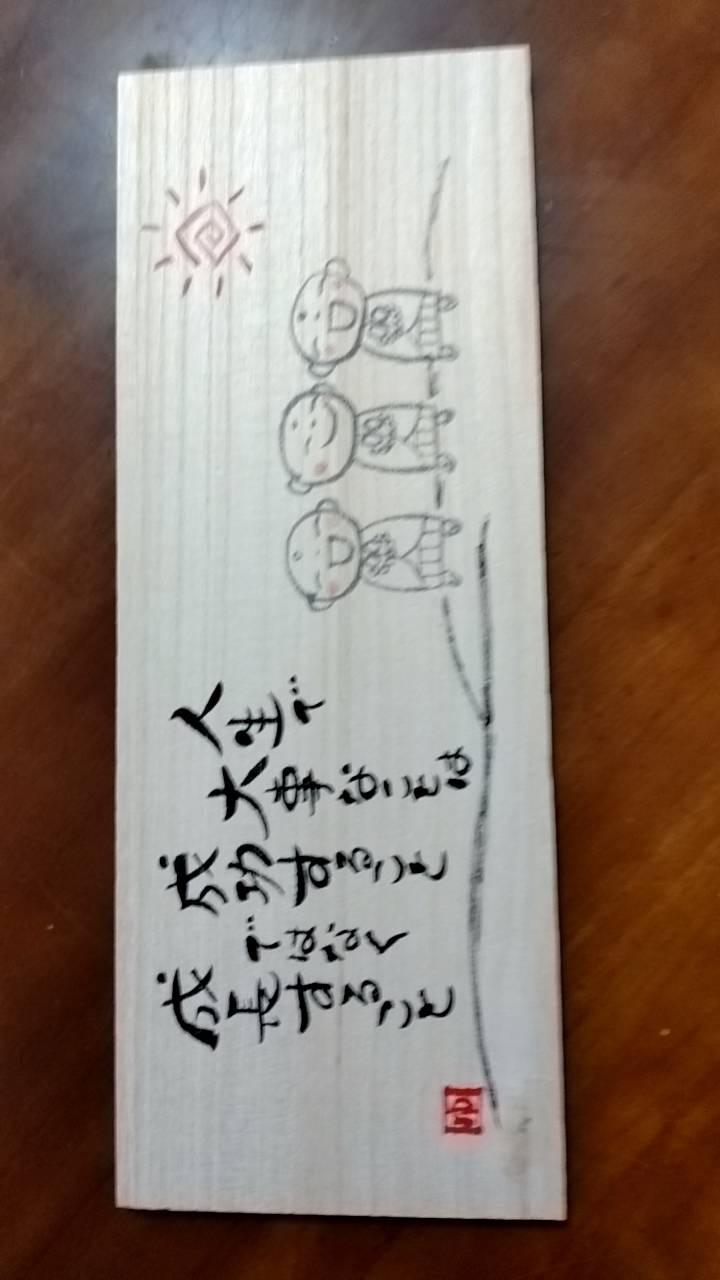 人生で
大事なことは
成功すること
ではなく
成長すること